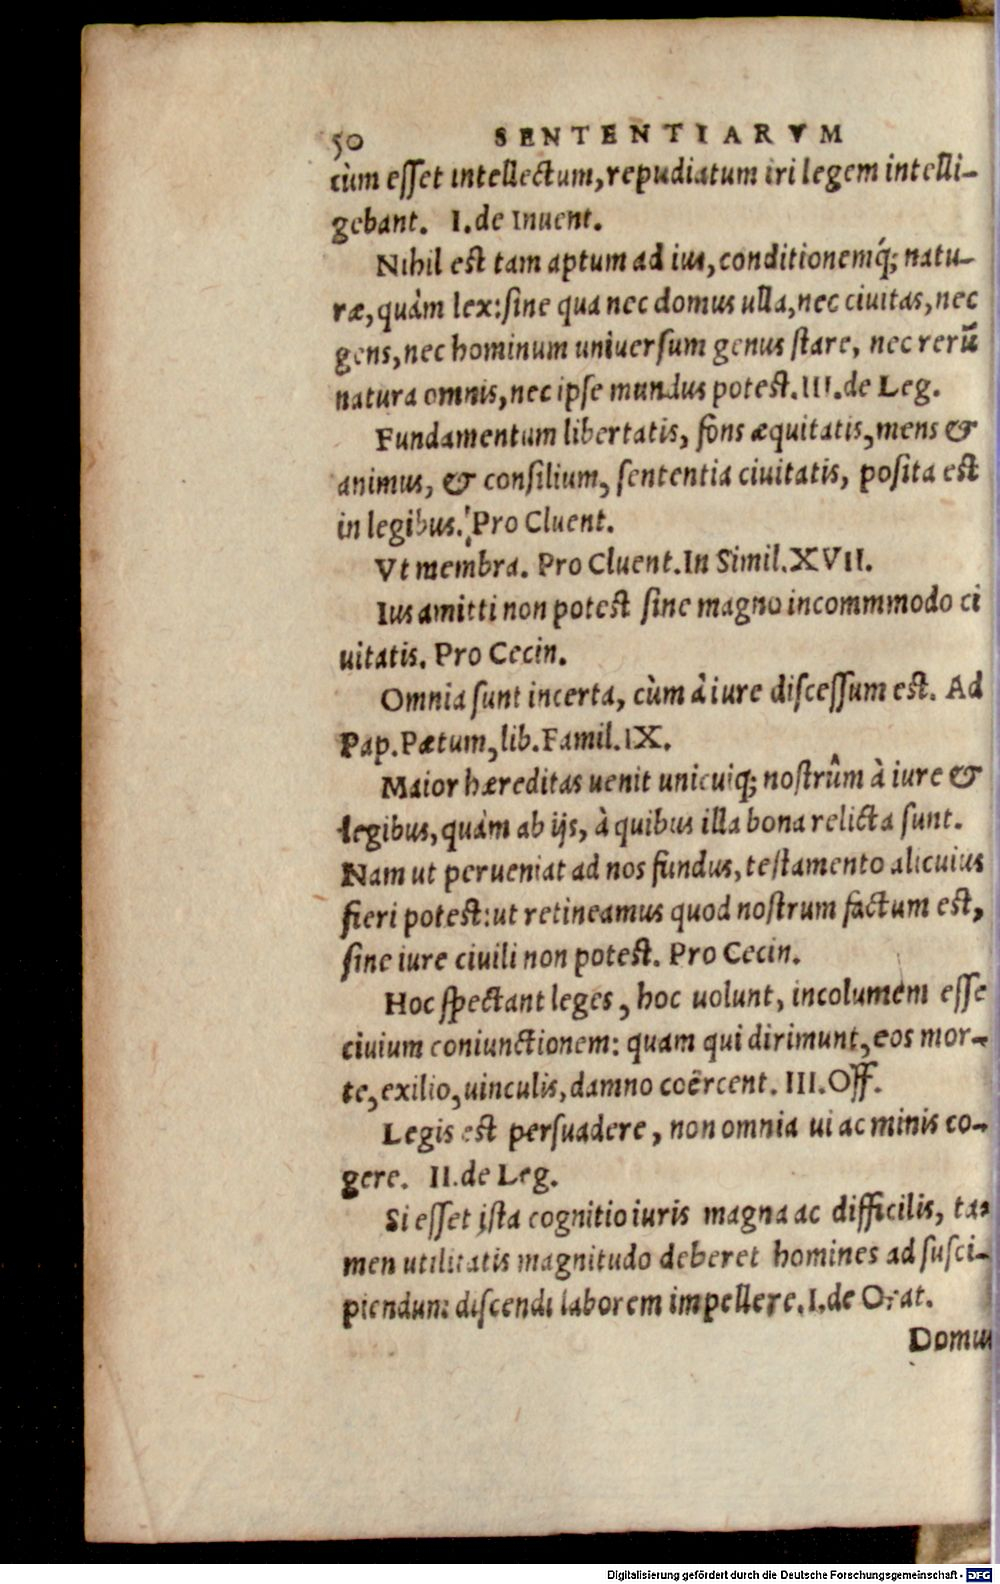 50 SENTENTIARVM
cùm esset intellectum, repudiatum iri legem intelli-
gebant. I. de Inuent.
Nihil est tam aptum ad ius, conditionemq́; natu-
ræ, quàm lex: sine qua nec domus ulla, nec ciuitas, nec
gens, nec hominum uniuersum genus stare, nec rerū
natura omnis, nec ipse mundus potest. III. de Leg.
Fundamentum libertatis, fons æquitatis, mens &
animus, & consilium, sententia ciuitatis, posita est
in legibus. Pro Cluent.
Vt membra. Pro Cluent. In Simil. XVII.
Ius amitti non potest sine magno incommmodo ci
uitatis. Pro Cecin.
Omnia sunt incerta, cùm à iure discessum est. Ad
Pap. Pætum, lib. Famil. IX.
Maior hæreditas uenit unicuiq; nostrûm à iure &
legibus, quàm ab ijs, à quibus illa bona relicta sunt.
Nam ut perueniat ad nos fundus, testamento alicuius
fieri potest: ut retineamus quod nostrum factum est,
sine iure ciuili non potest. Pro Cecin.
Hoc spectant leges, hoc uolunt, incolumem esse
ciuium coniunctionem: quam qui dirimunt, eos mor-
te, exilio, uinculis, damno coërcent. III. Off.
Legis est persuadere, non omnia ui ac minis co-
gere. II. de Leg.
Si esset ista cognitio iuris magna ac difficilis, ta-
men utilitatis magnitudo deberet homines ad susci-
piendum discendi laborem impellere. I. de Orat.
Domus
Digitalisierung gefördert durch die Deutsche Forschungsgemeinschaft - DFG